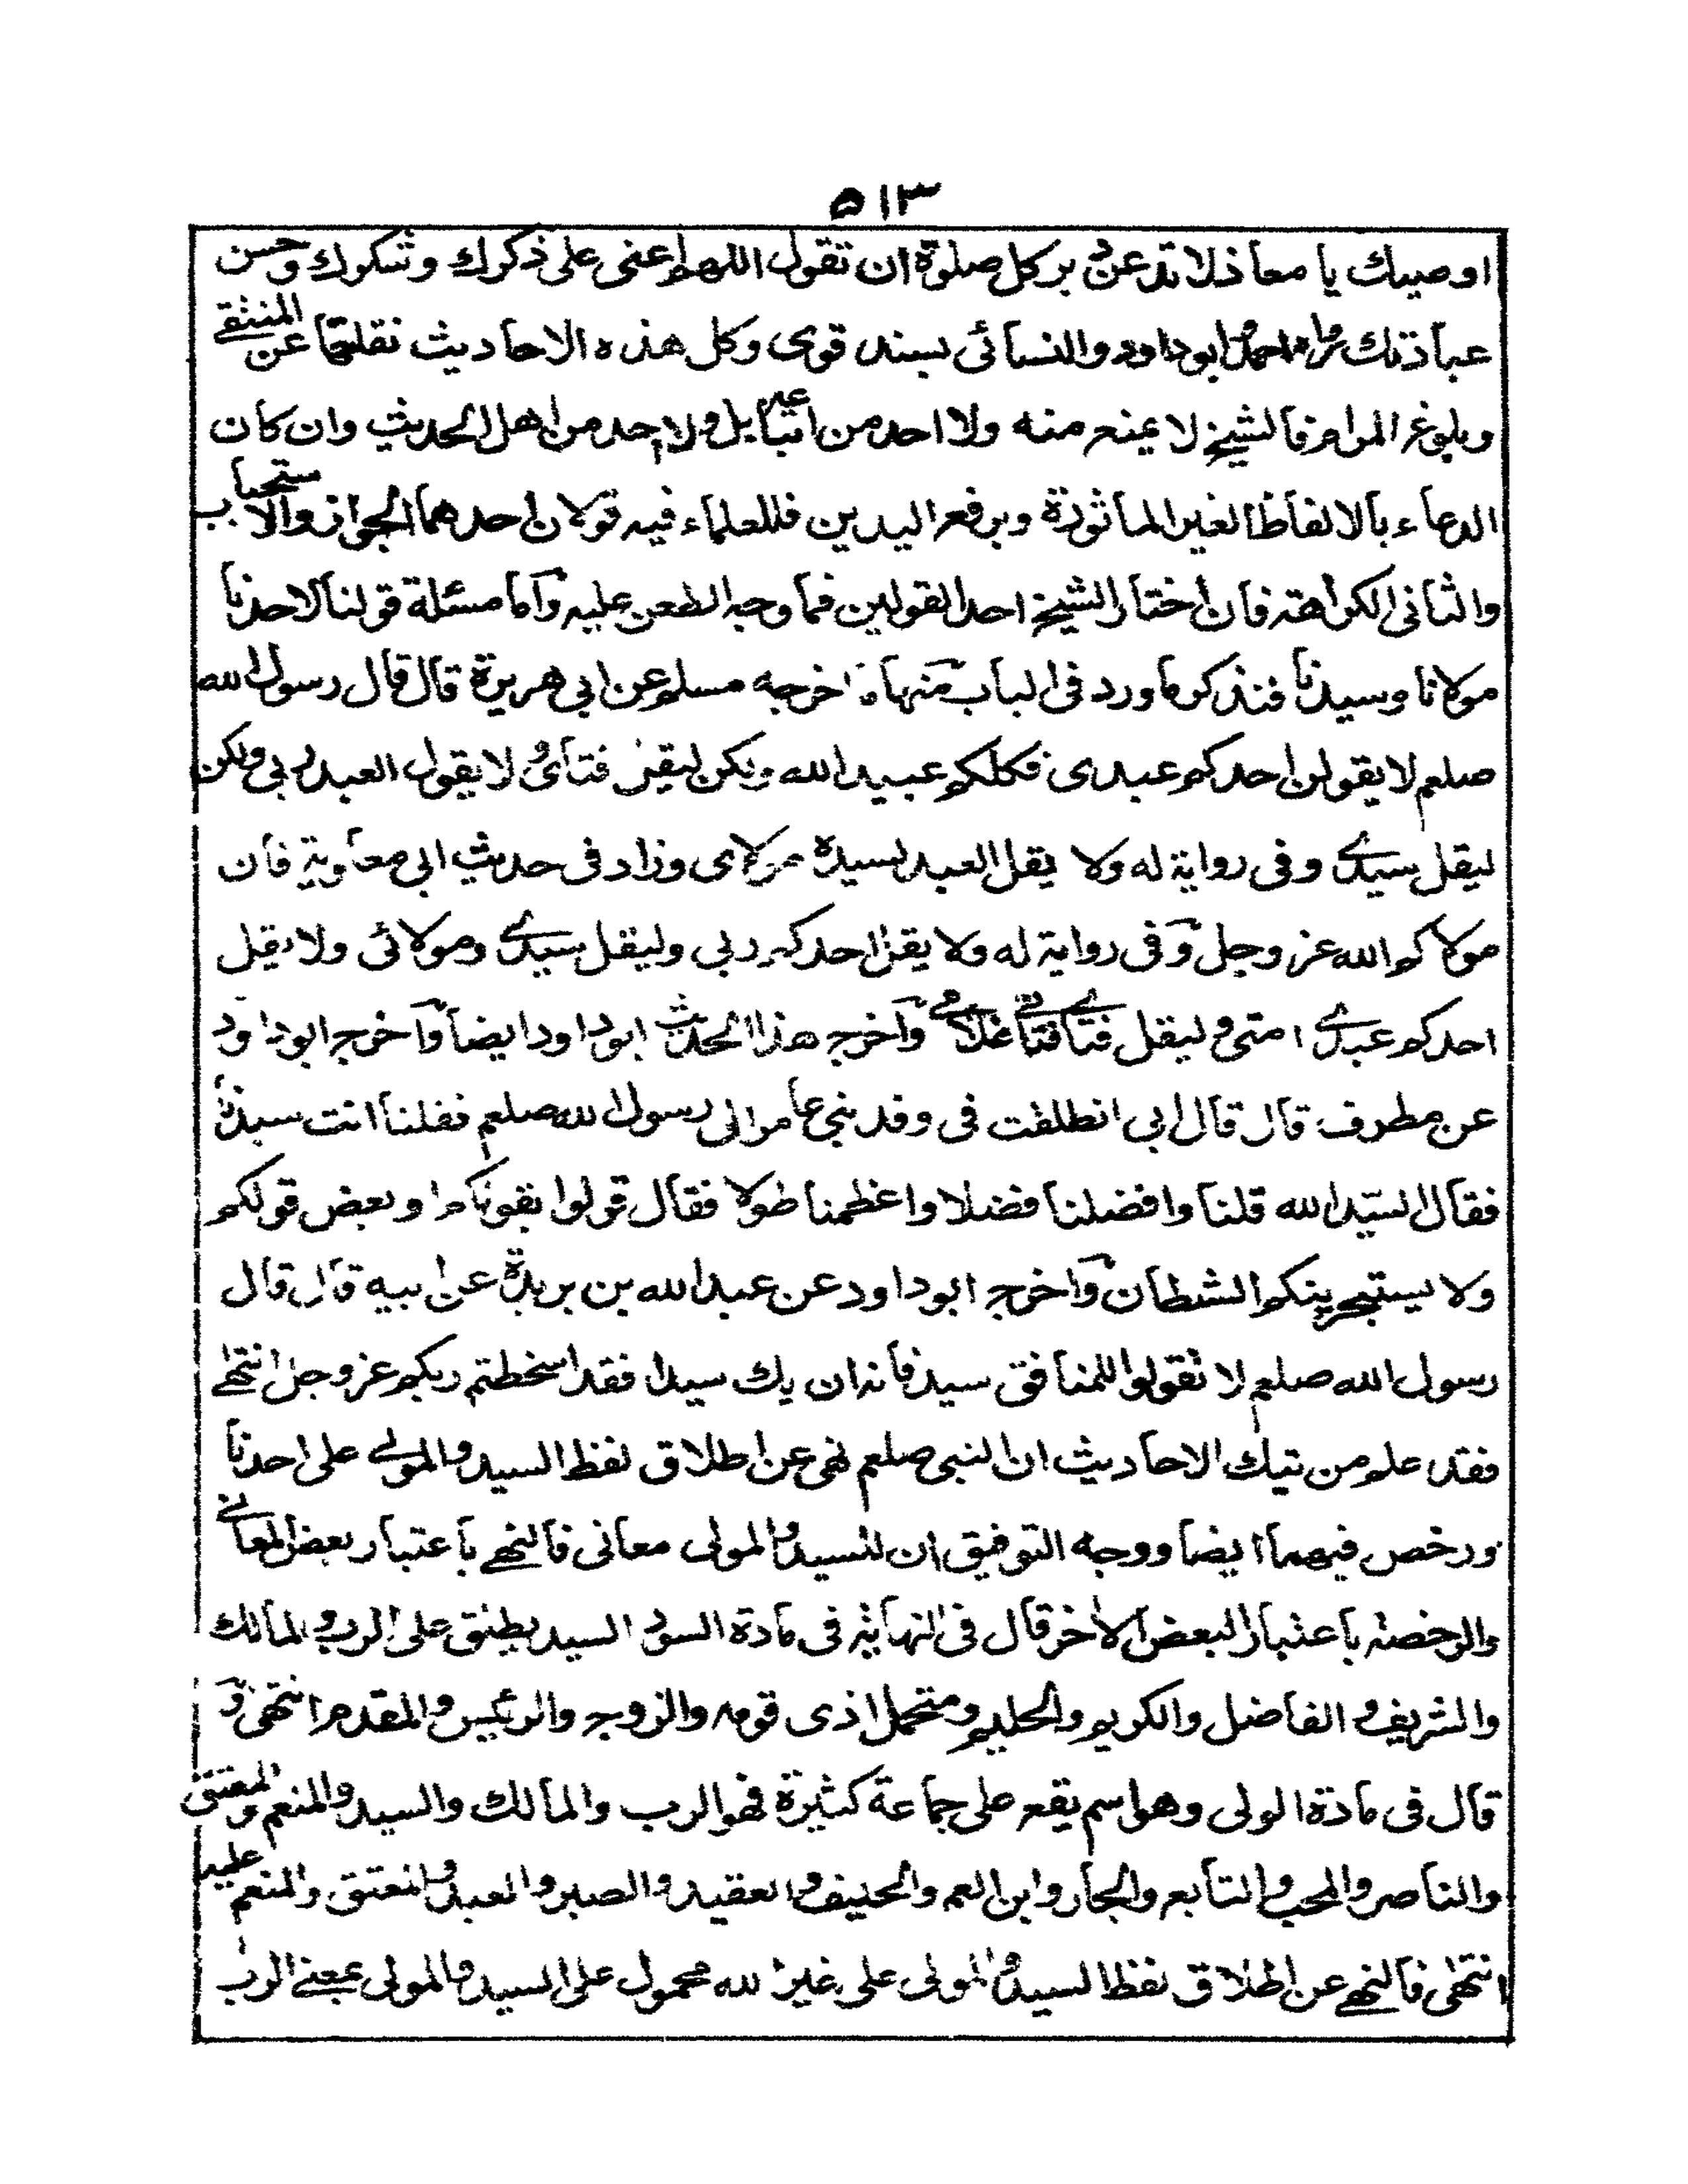 ٥١٣
اوصيك يا معاذ لا تدعن دبر كل صلوة ان تقول اللهم اعنى على ذكرك وشكرك وحسن
عبادتك رواه احمد وابو داود والنسائى بسند قوى وكل هذه الاحاديث نقلتها عن المنتقے
وبلوغ المرام فالشيخ لا يمنع منه ولا احد من اتباعه بل ولا احد من اهل الحديث وان كان
الدعاء بالالفاظ الغير الماثورة وبرفع اليدين فللعلماء فيه قولان احدهما الجواز والاستحباب
والثانى الكراهة فان اختار الشيخ احد القولين فما وجه الطعن عليه وآما مسئلة قولنا لاحدنا
مولانا وسيدنا فنذكر ما ورد فى الباب منها ما اخرجه مسلم عن ابي هريرة قال قال رسول الله
صلعم لا يقولن احدكم عبدى فكلكم عبيد الله ولكن ليقل فتاى ولا يقول العبد ربي ولكن
ليقل سيدے وفى رواية له ولا يقل العبد لسيده مولاى وزاد فى حديث ابي معاوية فان
مولاكم الله عز وجل وفى رواية له ولا يقل احدكم ربي وليقل سيدے ومولائى ولا يقل
احدكم عبدے امتى وليقل فتاے فتاتے غلامے وآخرج هذا الحديث ابو داود ايضا وآخرج ابو داود
عن مطرف قال قال ابي انطلقت فى وفد بنى عامر الى رسول الله صلعم فقلنا انت سيدنا
فقال السيّد الله قلنا وافضلنا فضلا واعظمنا طولا فقال قولوا بقولكم او بعض قولكم
ولا يستجرينكم الشطان وآخرج ابو داود عن عبد الله بن بريدة عن ابيه قال قال
رسول الله صلعم لا تقولوا للمنافق سيد فانه ان يك سيدا فقد اسخطتم ربكم عز وجل انتهٰے
فقد علم من تيك الاحاديث ان النبى صلعم نهى عن اطلاق لفظ السيد والمولے على احدنا
ورخص فيهما ايضا ووجه التوفيق ان للسيد والمولى معانى فالنهے باعتبار بعض المعانے
والرخصة باعتبار البعض الاٰخر قال فى النهاية فى مادة السود السيد يطلق على الرب والمالك
والشريف والفاضل والكريم والحليم ومتحمل اذى قومه والزوج والرئيس والمقدم انتهى و
قال فى مادة الولى وهو اسم يقع على جماعة كثيرة فهو الرب والمالك والسيد والمنعم والمعتق
والناصر والمحب والتابع والجار وابن العم والحليف والعقيد والصهر والعبد والمعتق والمنعم عليه
انتهٰى فالنهے عن اطلاق لفظ السيد والمولى على غير الله محمول على السيد والمولى بمعنے الرب